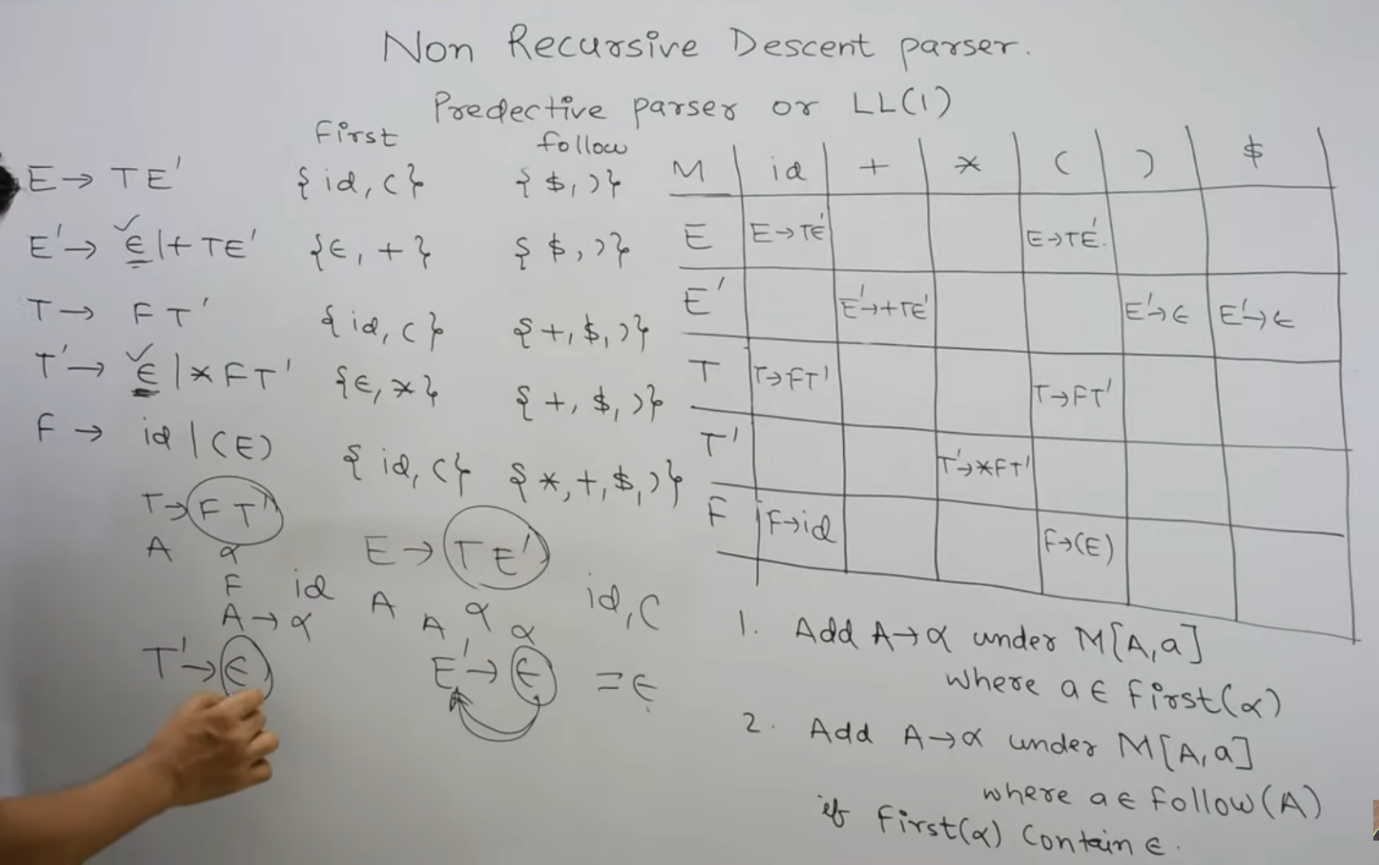 Non Recursive Descent parser.
Predective parser or LL(1)
First follow
E → TE' {id, (} {$, )}
E' → ϵ | + TE' {ϵ, +} {$, )}
T → FT' {id, (} {+, $, )}
T' → ϵ | * FT' {ϵ, *} {+, $, )}
F → id | (E) {id, (} {*, +, $, )}
M id + * ( ) $
E E → TE' E → TE'.
E' E' → +TE' E' → ϵ E' → ϵ
T T → FT' T → FT'
T' T' → *FT'
F F → id F → (E)
T → FT'
A α
F id
A → α
T' → ϵ
E → TE'
A α id, (
A α
E' → ϵ = ϵ
1. Add A → α under M[A, a]
where a ϵ First(α)
2. Add A → α under M[A, a]
where a ϵ follow(A)
if First(α) Contain ϵ.